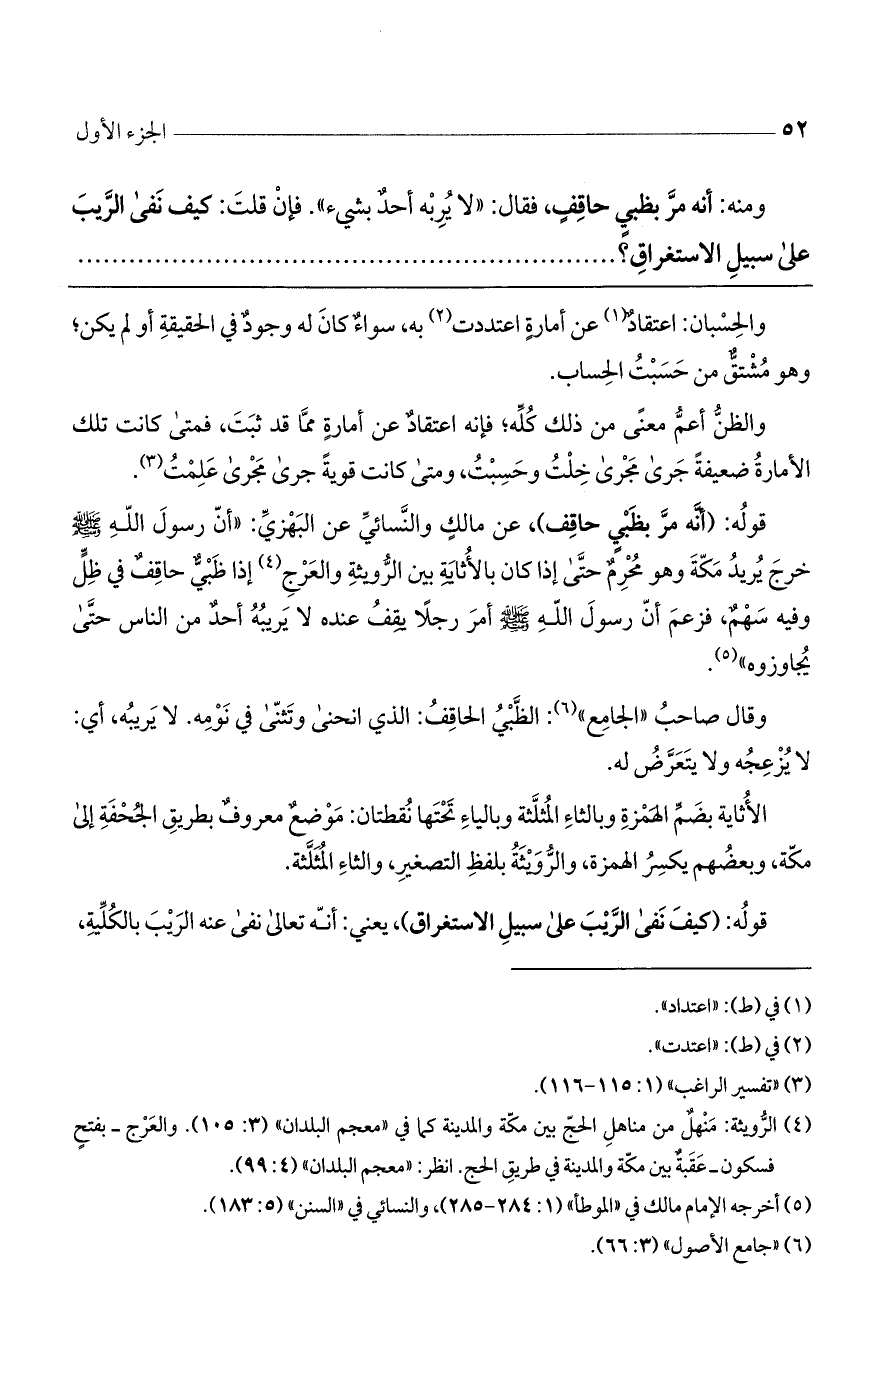 ٥٢ الجزء الأول
ومنه: أنه مرَّ بظبيٍ حاقِفٍ، فقال: «لا يُرِبْه أحدٌ بشيء». فإنْ قلتَ: كيف نَفىٰ الرَّيبَ
علىٰ سبيلِ الاستغراقِ؟..............................................................
والحِسْبان: اعتقادٌ(١) عن أمارةٍ اعتددت(٢) به، سواءٌ كانَ له وجودٌ في الحقيقةِ أو لم يكن؛
وهو مُشْتقٌّ من حَسَبْتُ الحِساب.
والظنُّ أعمُّ معنًى من ذلك كُلِّه؛ فإنه اعتقادٌ عن أمارةٍ ممَّا قد ثبَتَ، فمتىٰ كانت تلك
الأمارةُ ضعيفةً جَرىٰ مَجْرىٰ خِلْتُ وحَسِبْتُ، ومتىٰ كانت قويةً جرىٰ مَجْرىٰ عَلِمْتُ(٣).
قولُه: (أنَّه مرَّ بظَبْيٍ حاقِف)، عن مالكٍ والنَّسائيِّ عن البَهْزيِّ: «أنّ رسولَ اللّهِ ﷺ
خرجَ يُريدُ مَكّةَ وهو مُحْرِمٌ حتَّىٰ إذا كان بالأُثايَةِ بين الرُّويثةِ والعَرْجِ(٤) إذا ظَبْيٌ حاقِفٌ في ظِلٍّ
وفيه سَهْمٌ، فزعمَ أنّ رسولَ اللّهِ ﷺ أمرَ رجلًا يقِفُ عنده لا يَريبُهُ أحدٌ من الناس حتَّىٰ
يُجاوزوه»(٥).
وقال صاحبُ «الجامِع»(٦): الظَّبْيُ الحاقِفُ: الذي انحنىٰ وتَثنّىٰ في نَوْمِه. لا يَريبُه، أي:
لا يُزْعِجُه ولا يتَعَرَّضُ له.
الأُثاية بضَمِّ الهَمْزةِ وبالثاءِ المُثلَّثة وبالياءِ تَحْتَها نُقطتان: مَوْضعٌ معروفٌ بطريقِ الجُحْفَةِ إلىٰ
مكّة، وبعضُهم يكسِرُ الهمزة، والرُّوَيْثةُ بلفظِ التصغيرِ، والثاءِ المُثَلَّثة.
قولُه: (كيفَ نَفىٰ الرَّيْبَ علىٰ سبيلِ الاستغراق)، يعني: أنّه تعالىٰ نفىٰ عنه الرَيْبَ بالكُلِّيةِ،
(١) في (ط): «اعتداد».
(٢) في (ط): «اعتدت».
(٣) «تفسير الراغب» (١: ١١٥-١١٦).
(٤) الرُّويثة: مَنْهلٌ من مناهلِ الحجّ بين مكّة والمدينة كما في «معجم البلدان» (٣: ١٠٥). والعَرْج ـ بفتحٍ
فسكون ـ عَقَبةٌ بين مكّة والمدينة في طريقِ الحج. انظر: «معجم البلدان» (٤: ٩٩).
(٥) أخرجه الإمام مالك في «الموطأ» (١: ٢٨٤-٢٨٥)، والنسائي في «السنن» (٥: ١٨٣).
(٦) «جامع الأصول» (٣: ٦٦).